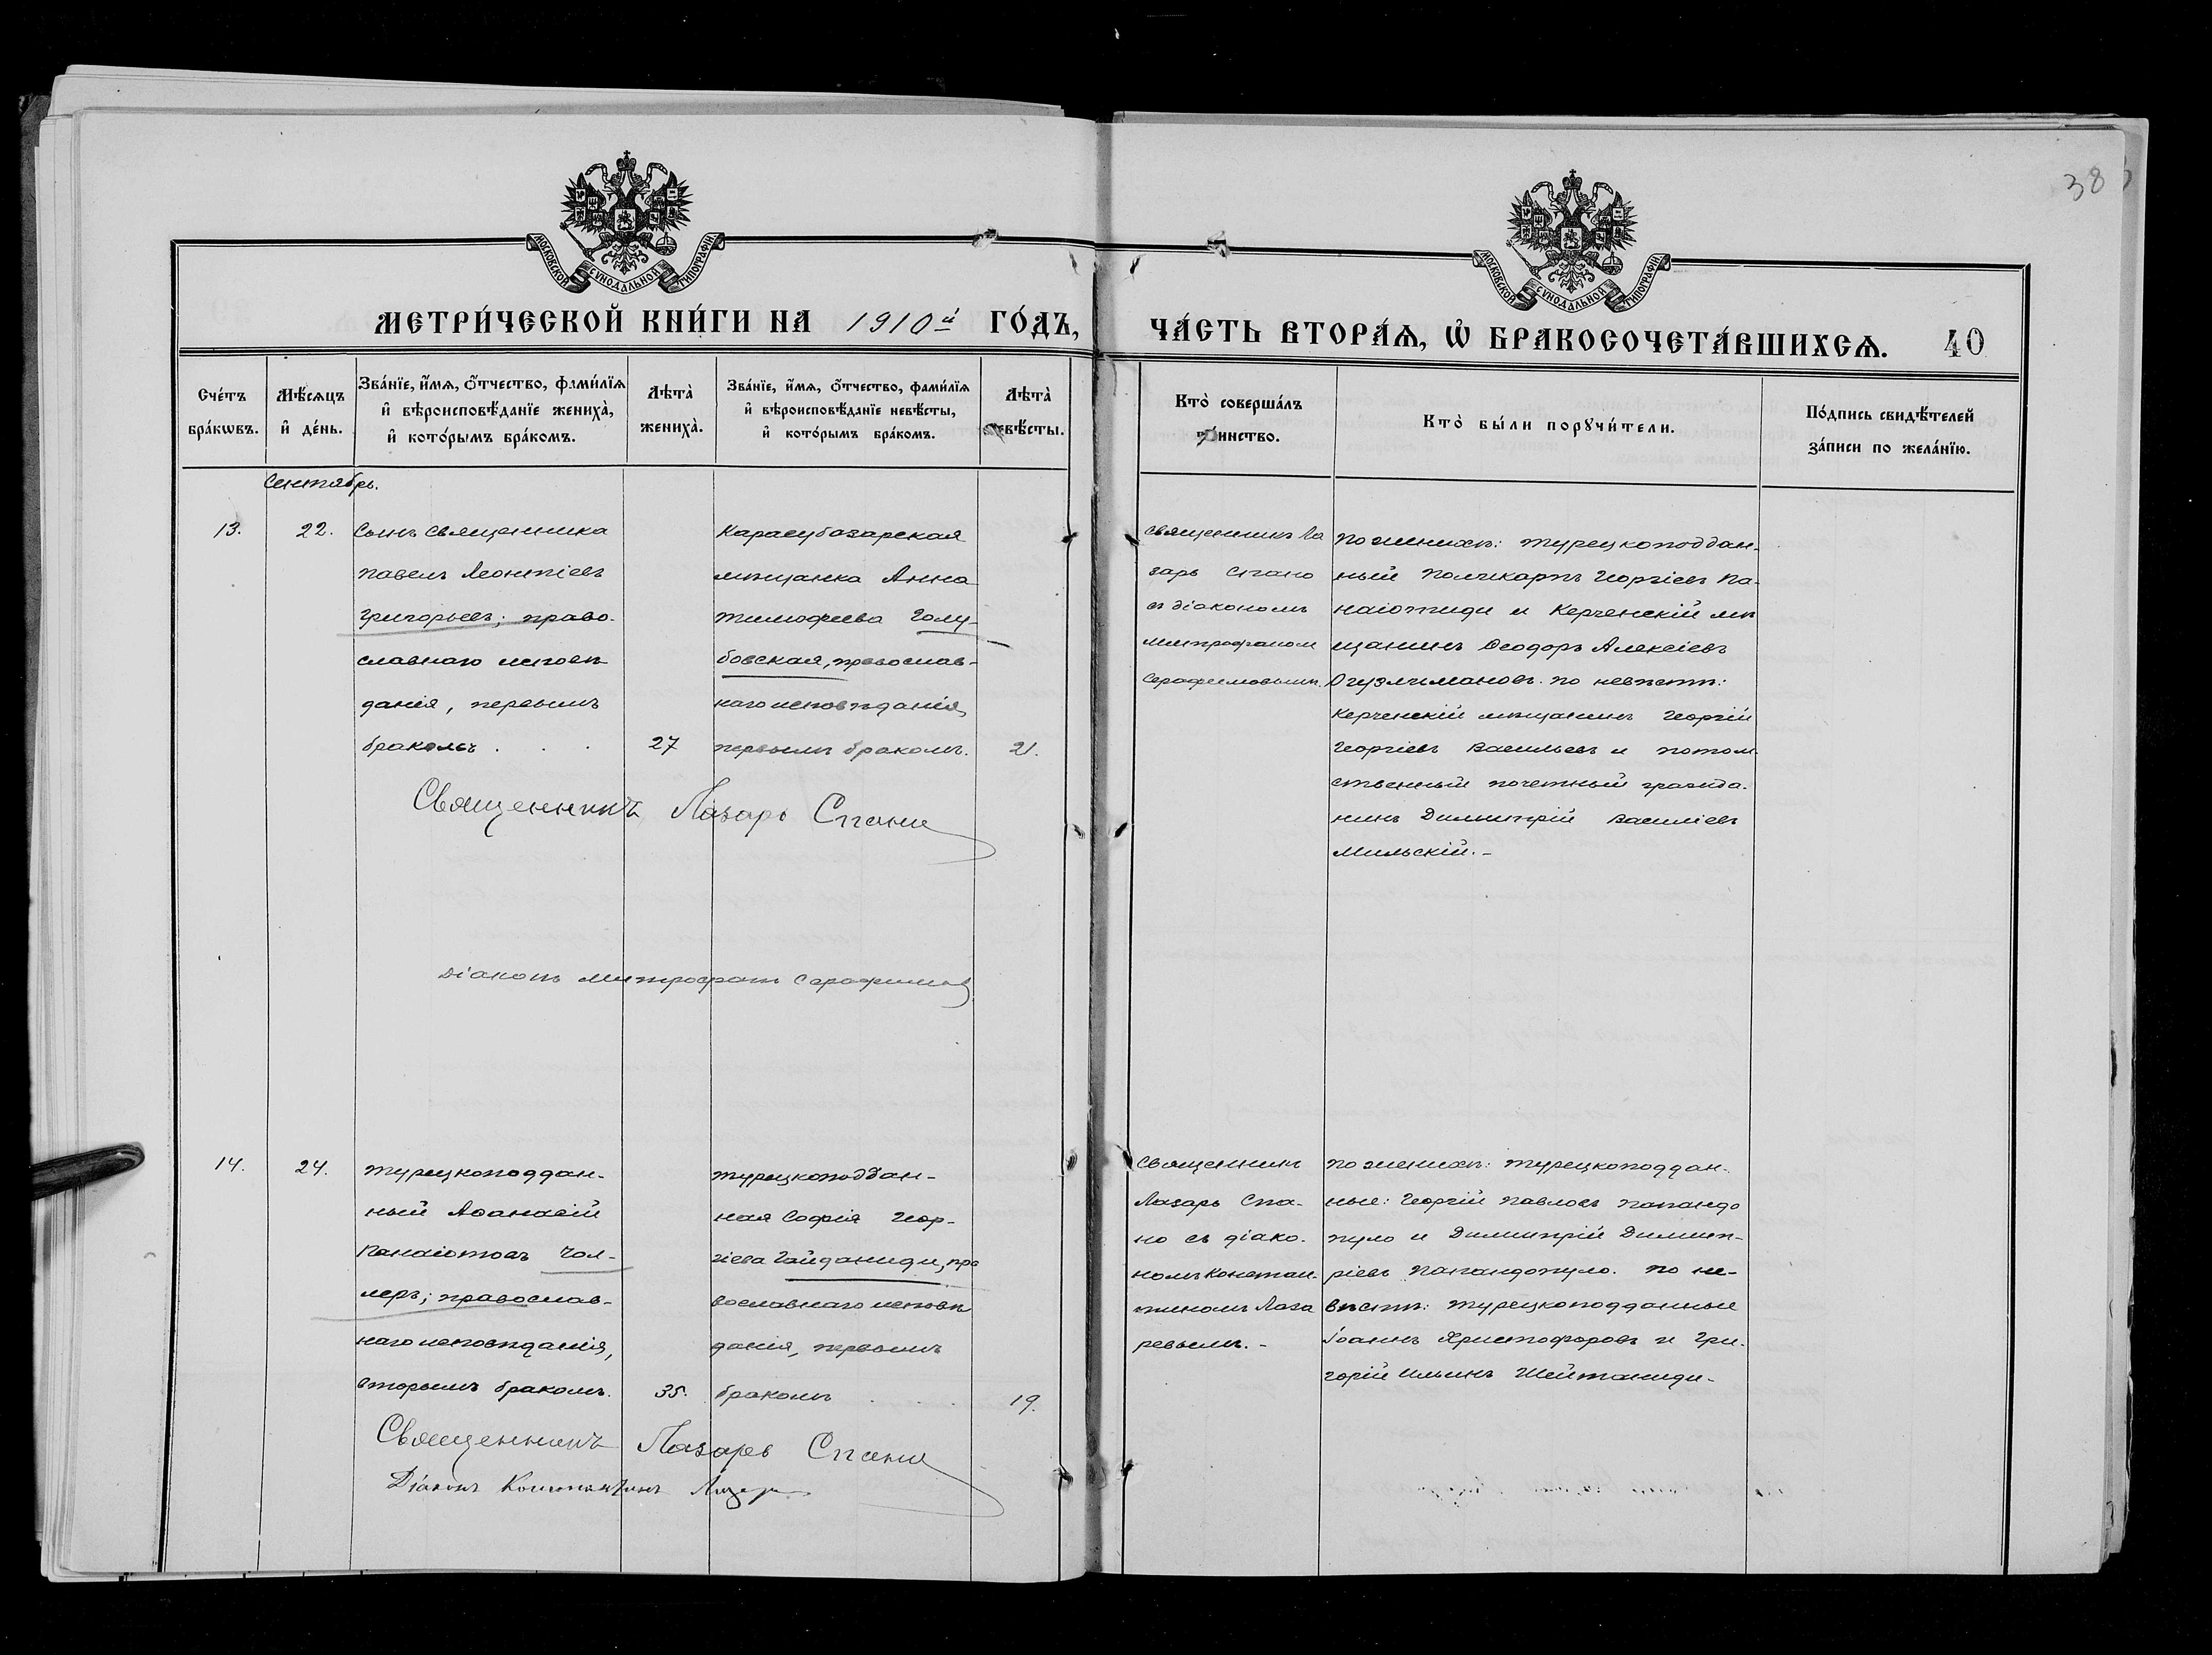 38
МОСКОВСКОЙ СѴНОДАЛЬНОЙ ТИПОГРАФІИ
МОСКОВСКОЙ СѴНОДАЛЬНОЙ ТИПОГРАФІИ
МЕТРИ́ЧЕСКОЙ КНИ́ГИ НА 1910й ГО́ДЪ,
ЧА́СТЬ ВТОРА́Ѧ, Ѡ҆ БРАКОСОЧЕТА́ВШИХСѦ. 40
Сче́тъ
бра́кѡвъ.
Мѣ́сѧцъ
и҆ де́нь.
Зва́нїе, и҆́мѧ, ѻ҆́тчество, фами́лїѧ
и҆ вѣроисповѣ́данїе жениха̀,
и҆ кото́рымъ бра́комъ.
Лѣта̀
жениха̀.
Зва́нїе, и҆́мѧ, ѻ҆́тчество, фами́лїѧ
и҆ вѣроисповѣ́данїе невѣ́сты,
и҆ кото́рымъ бра́комъ.
Лѣта̀
невѣ́сты.
Кто̀ соверша́лъ
та́инство.
Кто̀ бы́ли порꙋчи́тели.
По́дпись свидѣ́телей
за́писи по жела́нїю.
Сентябрь.
13.
22.
Сынъ священника
Павелъ Леонтіевъ
Григорьевъ; право-
славнаго исповѣ
данія, первымъ
бракомъ . . .
27
Карасубазарская
мѣщанка Анна
Тимофеева Голу-
бовская, православ-
наго исповѣданія,
первымъ бракомъ.
21.
Священникъ Ла
зарь Спано
съ діакономъ
Митрофаном
Серафимовымъ.
По женихѣ: турецкоподдан-
ный Поликарпъ Георгіевъ Па-
наіотиди и Керченскій мѣ
щанинъ Ѳеодоръ Алексіевъ
Огузлимановъ. По невѣстѣ:
Керченскій мѣщанинъ Георгій
Георгіевъ Васильевъ и потом
ственный почетный гражда-
нинъ Димитрій Василіевъ
Мильскій.-
Священникъ Лазарь Спано
Діаконъ Митрофанъ Серафимов
14.
24.
Турецкоподдан-
ный Аѳанасій
Панаіотовъ Чол-
леръ; православ-
наго исповѣданія,
вторымъ бракомъ.
35.
Турецкоподдан-
ная Софія Геор-
гіева Гайданиди, пра
вославнаго исповѣ
данія, первымъ
бракомъ . . .
19.
Священникъ
Лазарь Спа-
но съ діако-
номъ Констан-
тиномъ Лаза
ревымъ.-
По женихѣ: турецкоподдан-
ные: Георгій Павловъ Папандо
пуло и Димитрій Димит-
ріевъ Папандопуло. По не-
вѣстѣ: турецкоподданные
Іоаннъ Христофоровъ и Гри-
горій Ильинъ Шейтаниди.
Священникъ Лазарь Спано
Діаконъ Константинъ Лазарев